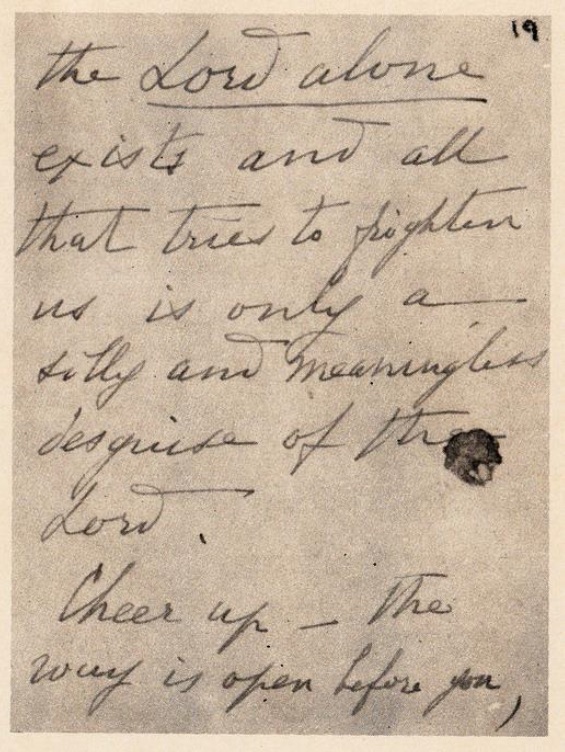 19
the Lord alone
exists and all
that tries to frighten
us is only a
silly and meaningless
desguise of the
Lord.
Cheer up – the
way is open before you,